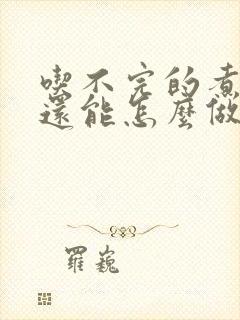 喫不完的煮
還能怎麼做
羅巍